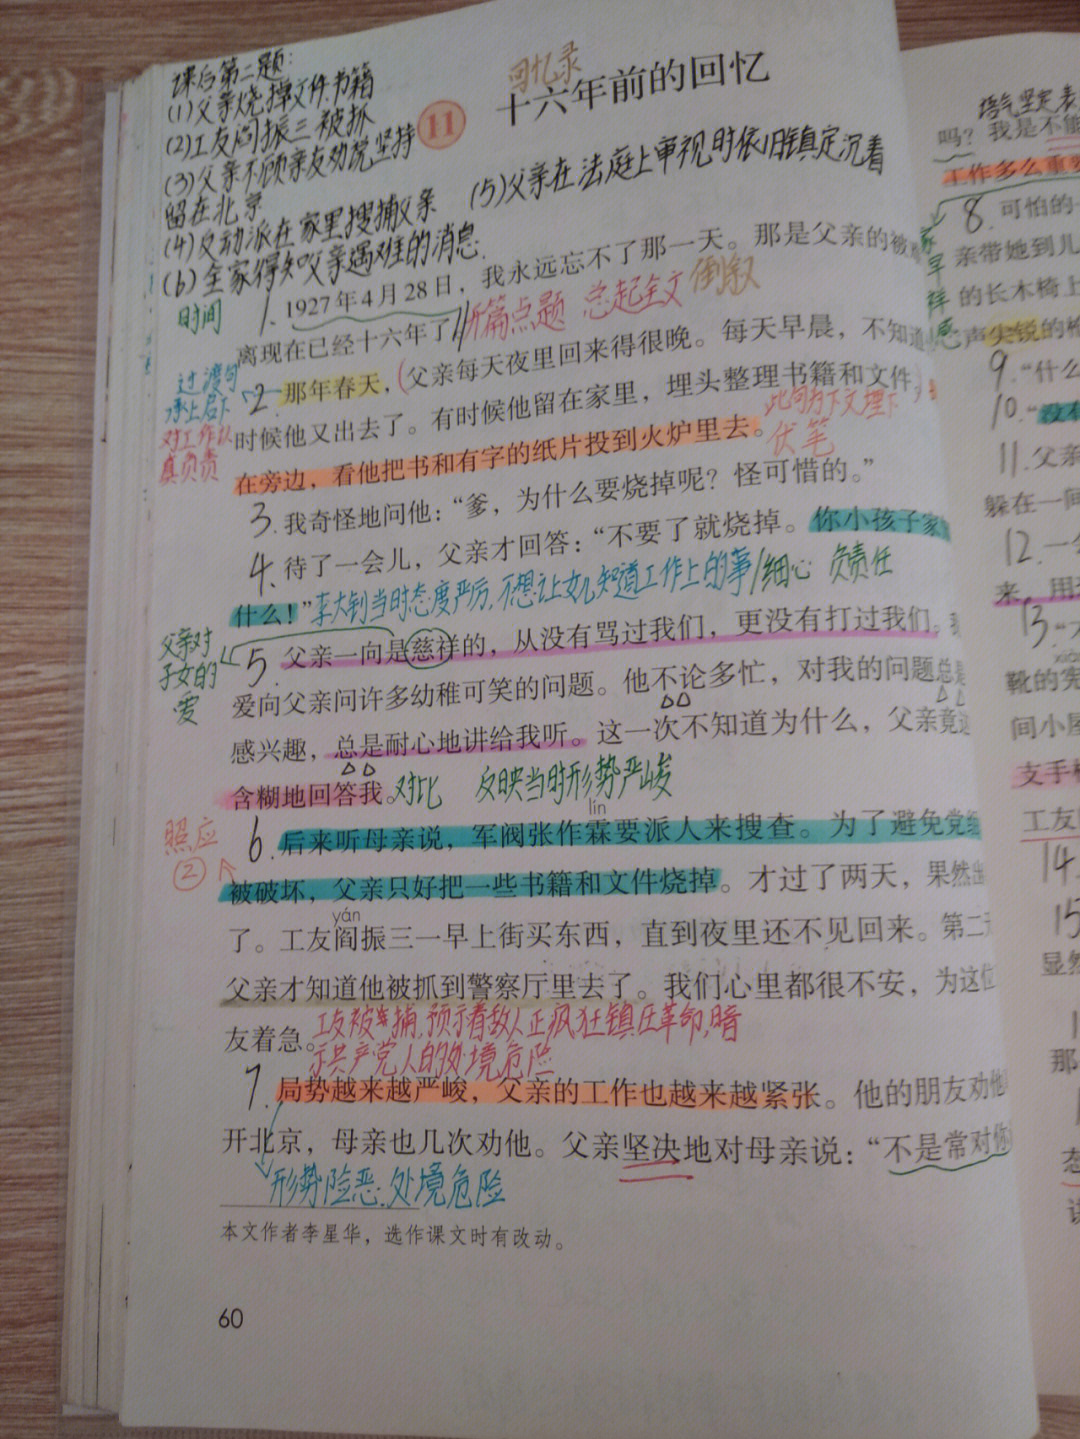 课后第二题:
(1)父亲烧掉文件书籍
(2)工友阎振三被抓
(3)父亲不顾亲友劝说坚持
留在北京
(4)反动派在家里搜捕父亲
(5)父亲在法庭上审视时依旧镇定沉着
(6)全家得知父亲遇难的消息.
回忆录
11
十六年前的回忆
时间
1. 1927年4月28日，我永远忘不了那一天。那是父亲的被
离现在已经十六年了
开篇点题 总起全文 倒叙
过渡句
承上启下
对工作认
真负责
2. 那年春天，(父亲每天夜里回来得很晚。每天早晨，不知道
时候他又出去了。有时候他留在家里，埋头整理书籍和文件
此句为下文埋下
伏笔
在旁边，看他把书和有字的纸片投到火炉里去。
3. 我奇怪地问他：“爹，为什么要烧掉呢？怪可惜的。”
4. 待了一会儿，父亲才回答：“不要了就烧掉。你小孩子家
什么！”
李大钊当时态度严厉,不想让女儿知道工作上的事/细心 负责任
父亲对
子女的
爱
5. 父亲一向是慈祥的，从没有骂过我们，更没有打过我们。
爱向父亲问许多幼稚可笑的问题。他不论多忙，对我的问题总是
感兴趣，总是耐心地讲给我听。这一次不知道为什么，父亲竟
含糊地回答我。
对比 反映当时形势严峻
照应
②
lín
6. 后来听母亲说，军阀张作霖要派人来搜查。为了避免党组
被破坏，父亲只好把一些书籍和文件烧掉。才过了两天，果然出
yán
了。工友阎振三一早上街买东西，直到夜里还不见回来。第二
父亲才知道他被抓到警察厅里去了。我们心里都很不安，为这位
友着急。
工友被捕,预示着敌人正疯狂镇压革命,暗
示共产党人的处境危险
7. 局势越来越严峻，父亲的工作也越来越紧张。他的朋友劝他
开北京，母亲也几次劝他。父亲坚决地对母亲说：“不是常对你
形势险恶.处境危险
本文作者李星华，选作课文时有改动。
60
语气坚定
吗？我是不能
工作多么重
8. 可怕的
亲带她到儿
的长木椅上
声尖锐的枪
9. “什么
10. “没有
11. 父亲
躲在一间
12. 一会
来，用
13.
靴的宪
间小屋
支手枪
工友
14.
15
显然
那